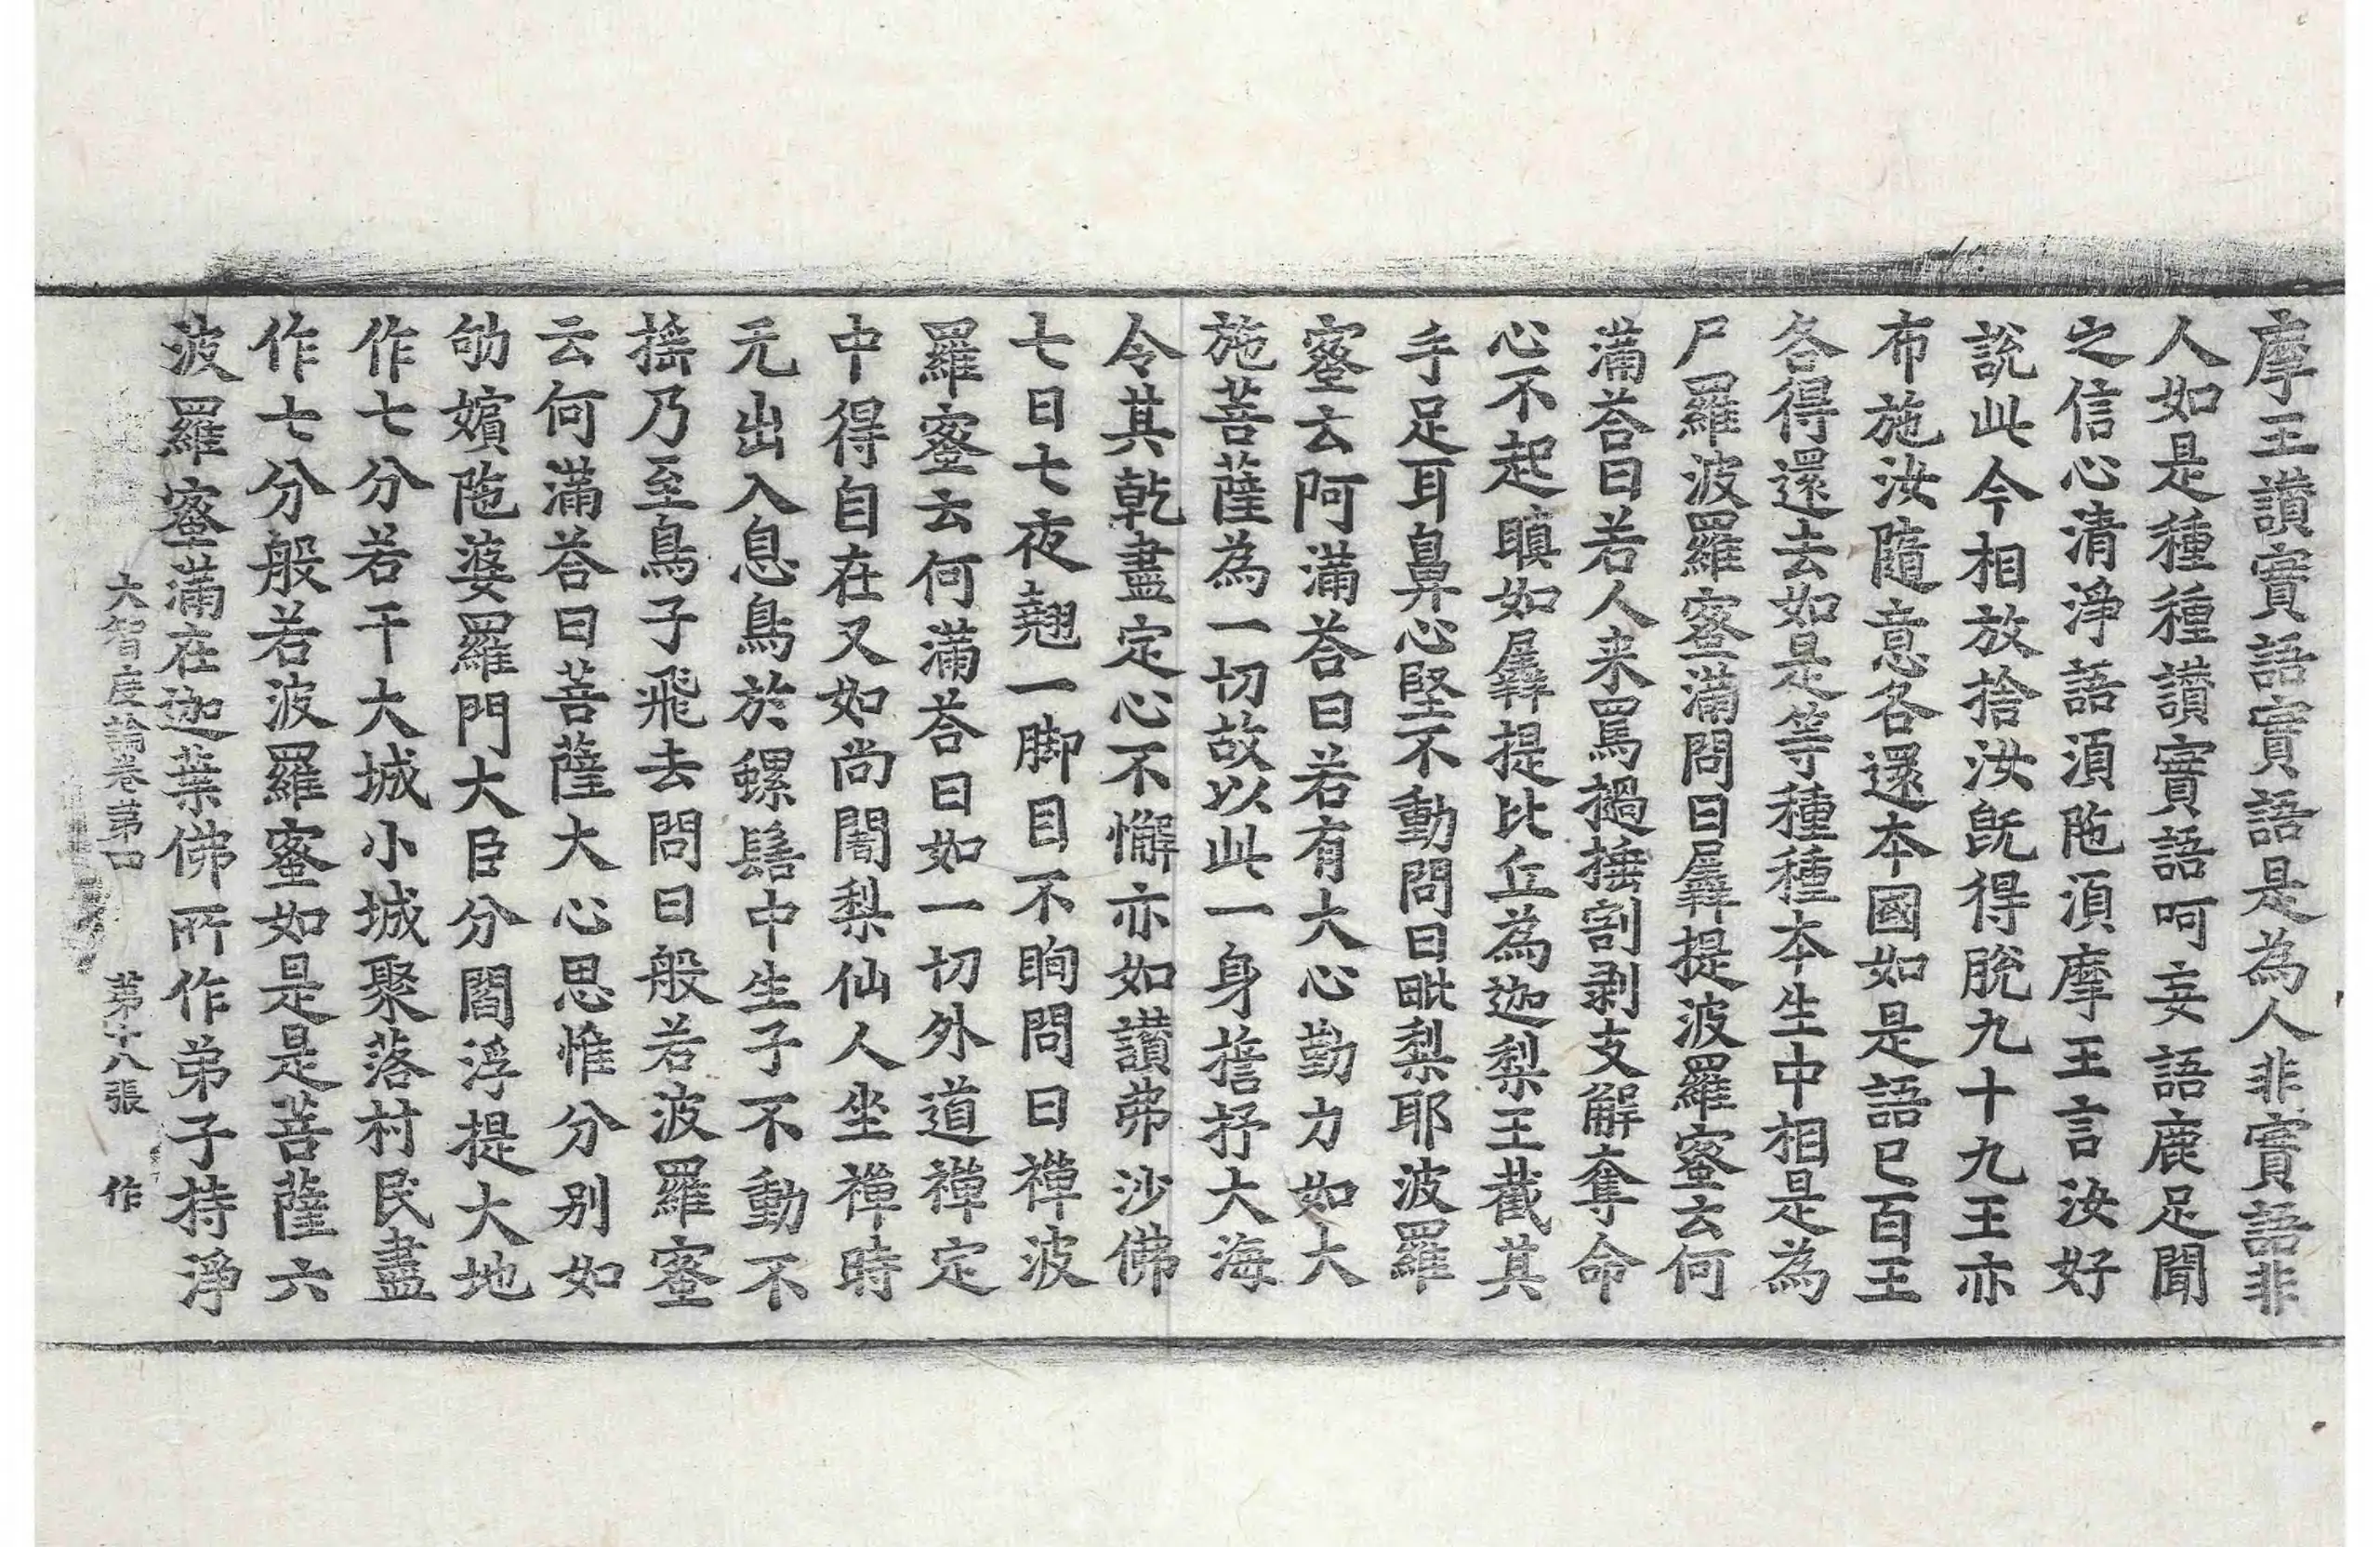 摩王讃實語實語是為人非實語非
人如是種種讃實語呵妄語鹿足聞
之信心清淨語湏陁湏摩王言汝好
說此今相放捨汝旣得脫九十九王亦
布施汝隨意各還本國如是語已百王
各得還去如是等種種本生中相是為
尸羅波羅蜜滿問曰羼提波羅蜜云何
滿荅曰若人来罵撾捶割剥支解奪命
心不起瞋如羼提比丘為迦梨王截其
手足耳鼻心堅不動問曰毗梨耶波羅
蜜云何滿荅曰若有大心勤力如大
施菩薩為一切故以此一身擔抒大海
令其乾盡定心不懈亦如讃弗沙佛
七日七夜翹一脚目不眴問曰禪波
羅蜜云何滿荅曰如一切外道禪定
中得自在又如尚闍梨仙人坐禪時
无出入息鳥於螺髻中生子不動不
搖乃至鳥子飛去問曰般若波羅蜜
云何滿荅曰菩薩大心思惟分别如
劬嬪陁婆羅門大臣分閻浮提大地
作七分若干大城小城聚落村民盡
作七分般若波羅蜜如是是菩薩六
波羅蜜滿在迦葉佛所作弟子持淨
大智度論卷第四 第十八張 作